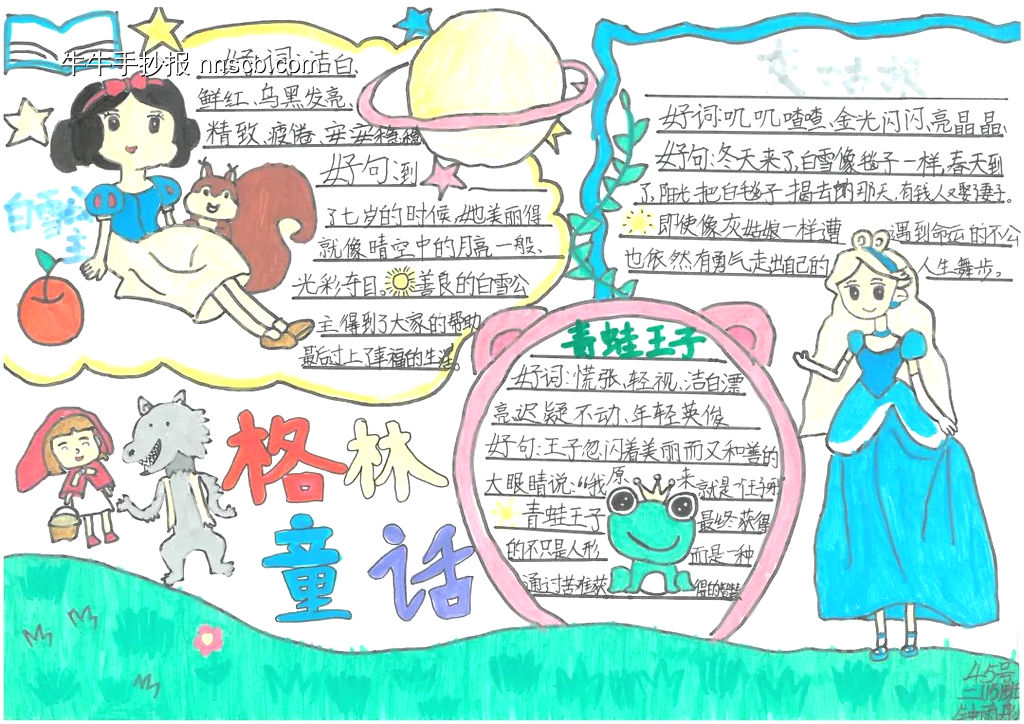 牛牛手抄报 nnscbl.com
好词:洁白
鲜红、乌黑发亮、
精致、疲倦、安安稳稳
好句:到
了七岁的时候,她美丽得
就像晴空中的月亮一般、
光彩夺目。善良的白雪公
主得到了大家的帮助
最后过上了幸福的生活。
白雪公主
好词:叽叽喳喳、金光闪闪、亮晶晶、
好句:冬天来了,白雪像毯子一样,春天到
了,阳光把白毯子揭去的那天,有钱人又娶了妻子。
即使像灰姑娘一样遭遇到命运的不公
也依然有勇气走出自己的人生舞步。
格林
童话
青蛙王子
好词:慌张、轻视、洁白漂
亮、迟疑不动、年轻英俊
好句:王子忽闪着美丽而又和善的
大眼睛说:“我原来就是
青蛙王子 最终获得
的不只是人形 而是一种
通过苦难获得的智慧
45号